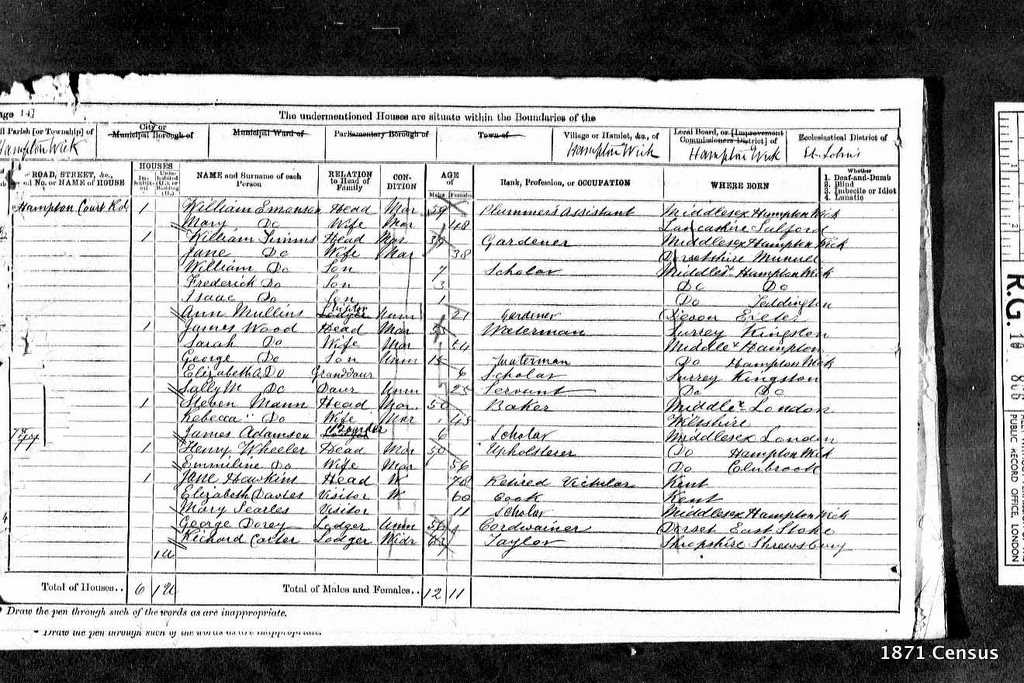 The undermentioned Houses are situate within the Boundaries of the
Parish [or Township] of City or Municipal Borough of Municipal Ward of Parliamentary Borough of Town of Village or Hamlet, &c., of Local Board, or [Improvement Commissioners District] of Ecclesiastical District of
Hampton Wick Hampton Wick Hampton Wick St. John's
ROAD, STREET, &c., and No. or NAME of HOUSE HOUSES NAME and Surname of each Person RELATION to Head of Family CONDITION AGE of Males Females Rank, Profession, or OCCUPATION WHERE BORN Whether
1. Deaf-and-Dumb
2. Blind
3. Imbecile or Idiot
4. Lunatic
Hampton Court Rd 1 William Emanson Head Mar 59 Plummers Assistant Middlesex Hampton Wick
Mary Do Wife Mar 48 Lancashire Salford
1 William Timms Head Mar Gardener Middlesex Hampton Wick
Jane Do Wife Mar 38 Dorsetshire
William Do Son 7 Scholar Middlesx Hampton Wick
Frederick Do Son 3 Do Do
Isaac Do Son 1 Do Teddington
Ann Mullins Visitor Unm 21 Gardener Devon Exeter
1 James Wood Head Mar Waterman Surrey Kingston
Sarah Do Wife Mar 54 Middlex Hampton
George Do Son Unm 15 Waterman Do Hampton Wick
Elizabeth A Do Grandaur 6 Scholar Surrey Kingston
Sally M Do Daur Unm 25 Servant Do Do
1 Steven Mann Head Mar 50 Baker Middlex London
Rebecca Do Wife Mar 45 Wiltshire
James Adamson Boarder 6 Scholar Middlesex London
1 Henry Wheeler Head Mar 50 Upholsterer Do Hampton Wick
Emmiline Do Wife Mar 56 Do
1 Jane Hawkins Head W 78 Retired Kent
Elizabeth Davies Visitor W 60 Cook Kent
Mary Searles Visitor 11 Scholar Middlesex Hampton Wick
George Dorey Lodger Unm Cordwainer Dorset East Stoke
Richard Carter Lodger Widr 63 Taylor Shropshire Shrewsbury
1u
Total of Houses.. 6 1u Total of Males and Females.. 12 11
Draw the pen through such of the words as are inappropriate.
Draw the pen through such of the words as are inappropriate.
R.G. 10
PUBLIC RECORD OFFICE, LONDON
1871 Census